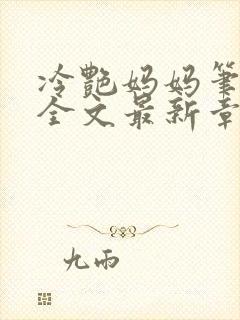 冷艷妈妈筆
全文最新章
九雨